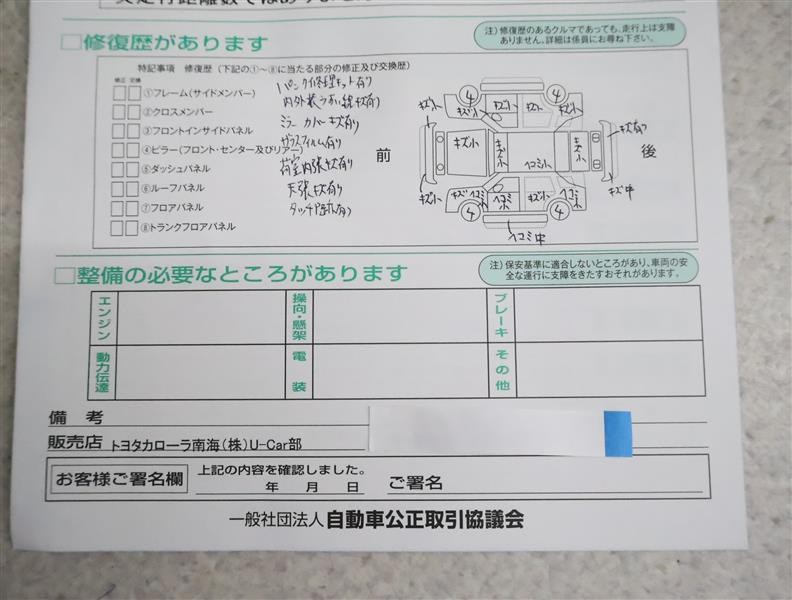 □修復歴があります
注）修復歴のあるクルマであっても、走行上は支障
ありません。詳細は係員にお尋ね下さい。
特記事項 修復歴（下記の①〜⑧に当たる部分の修正及び交換歴）
修正 交換
①フレーム(サイドメンバー)
②クロスメンバー
③フロントインサイドパネル
④ピラー(フロント・センター及びリアー)
⑤ダッシュパネル
⑥ルーフパネル
⑦フロアパネル
⑧トランクフロアパネル
パンク修理キット有り
内外装うすい線キズ有り
ミラーカバーキズ有り
ガラスフィルム有り
荷室内張キズ有り
天張キズ有り
タッチ
有り
前
後
キズ小
④
キズ小
キズ小
④
キズ小
キズ小
キズ有り
キズ小
キズ小
ヘコミ小
キズ小
キズ小
キズ小
ヘコミ小
ヘコミ小
キズ小
ヘコミ小
キズ中
④
④
ヘコミ中
□整備の必要なところがあります
注）保安基準に適合しないところがあり、車両の安
全な運行に支障をきたすおそれがあります。
エンジン
操向・懸架
ブレーキ
動力伝達
電装
その他
備考
販売店 トヨタカローラ南海(株)U-Car部
お客様ご署名欄
上記の内容を確認しました。
年 月 日
ご署名
一般社団法人 自動車公正取引協議会